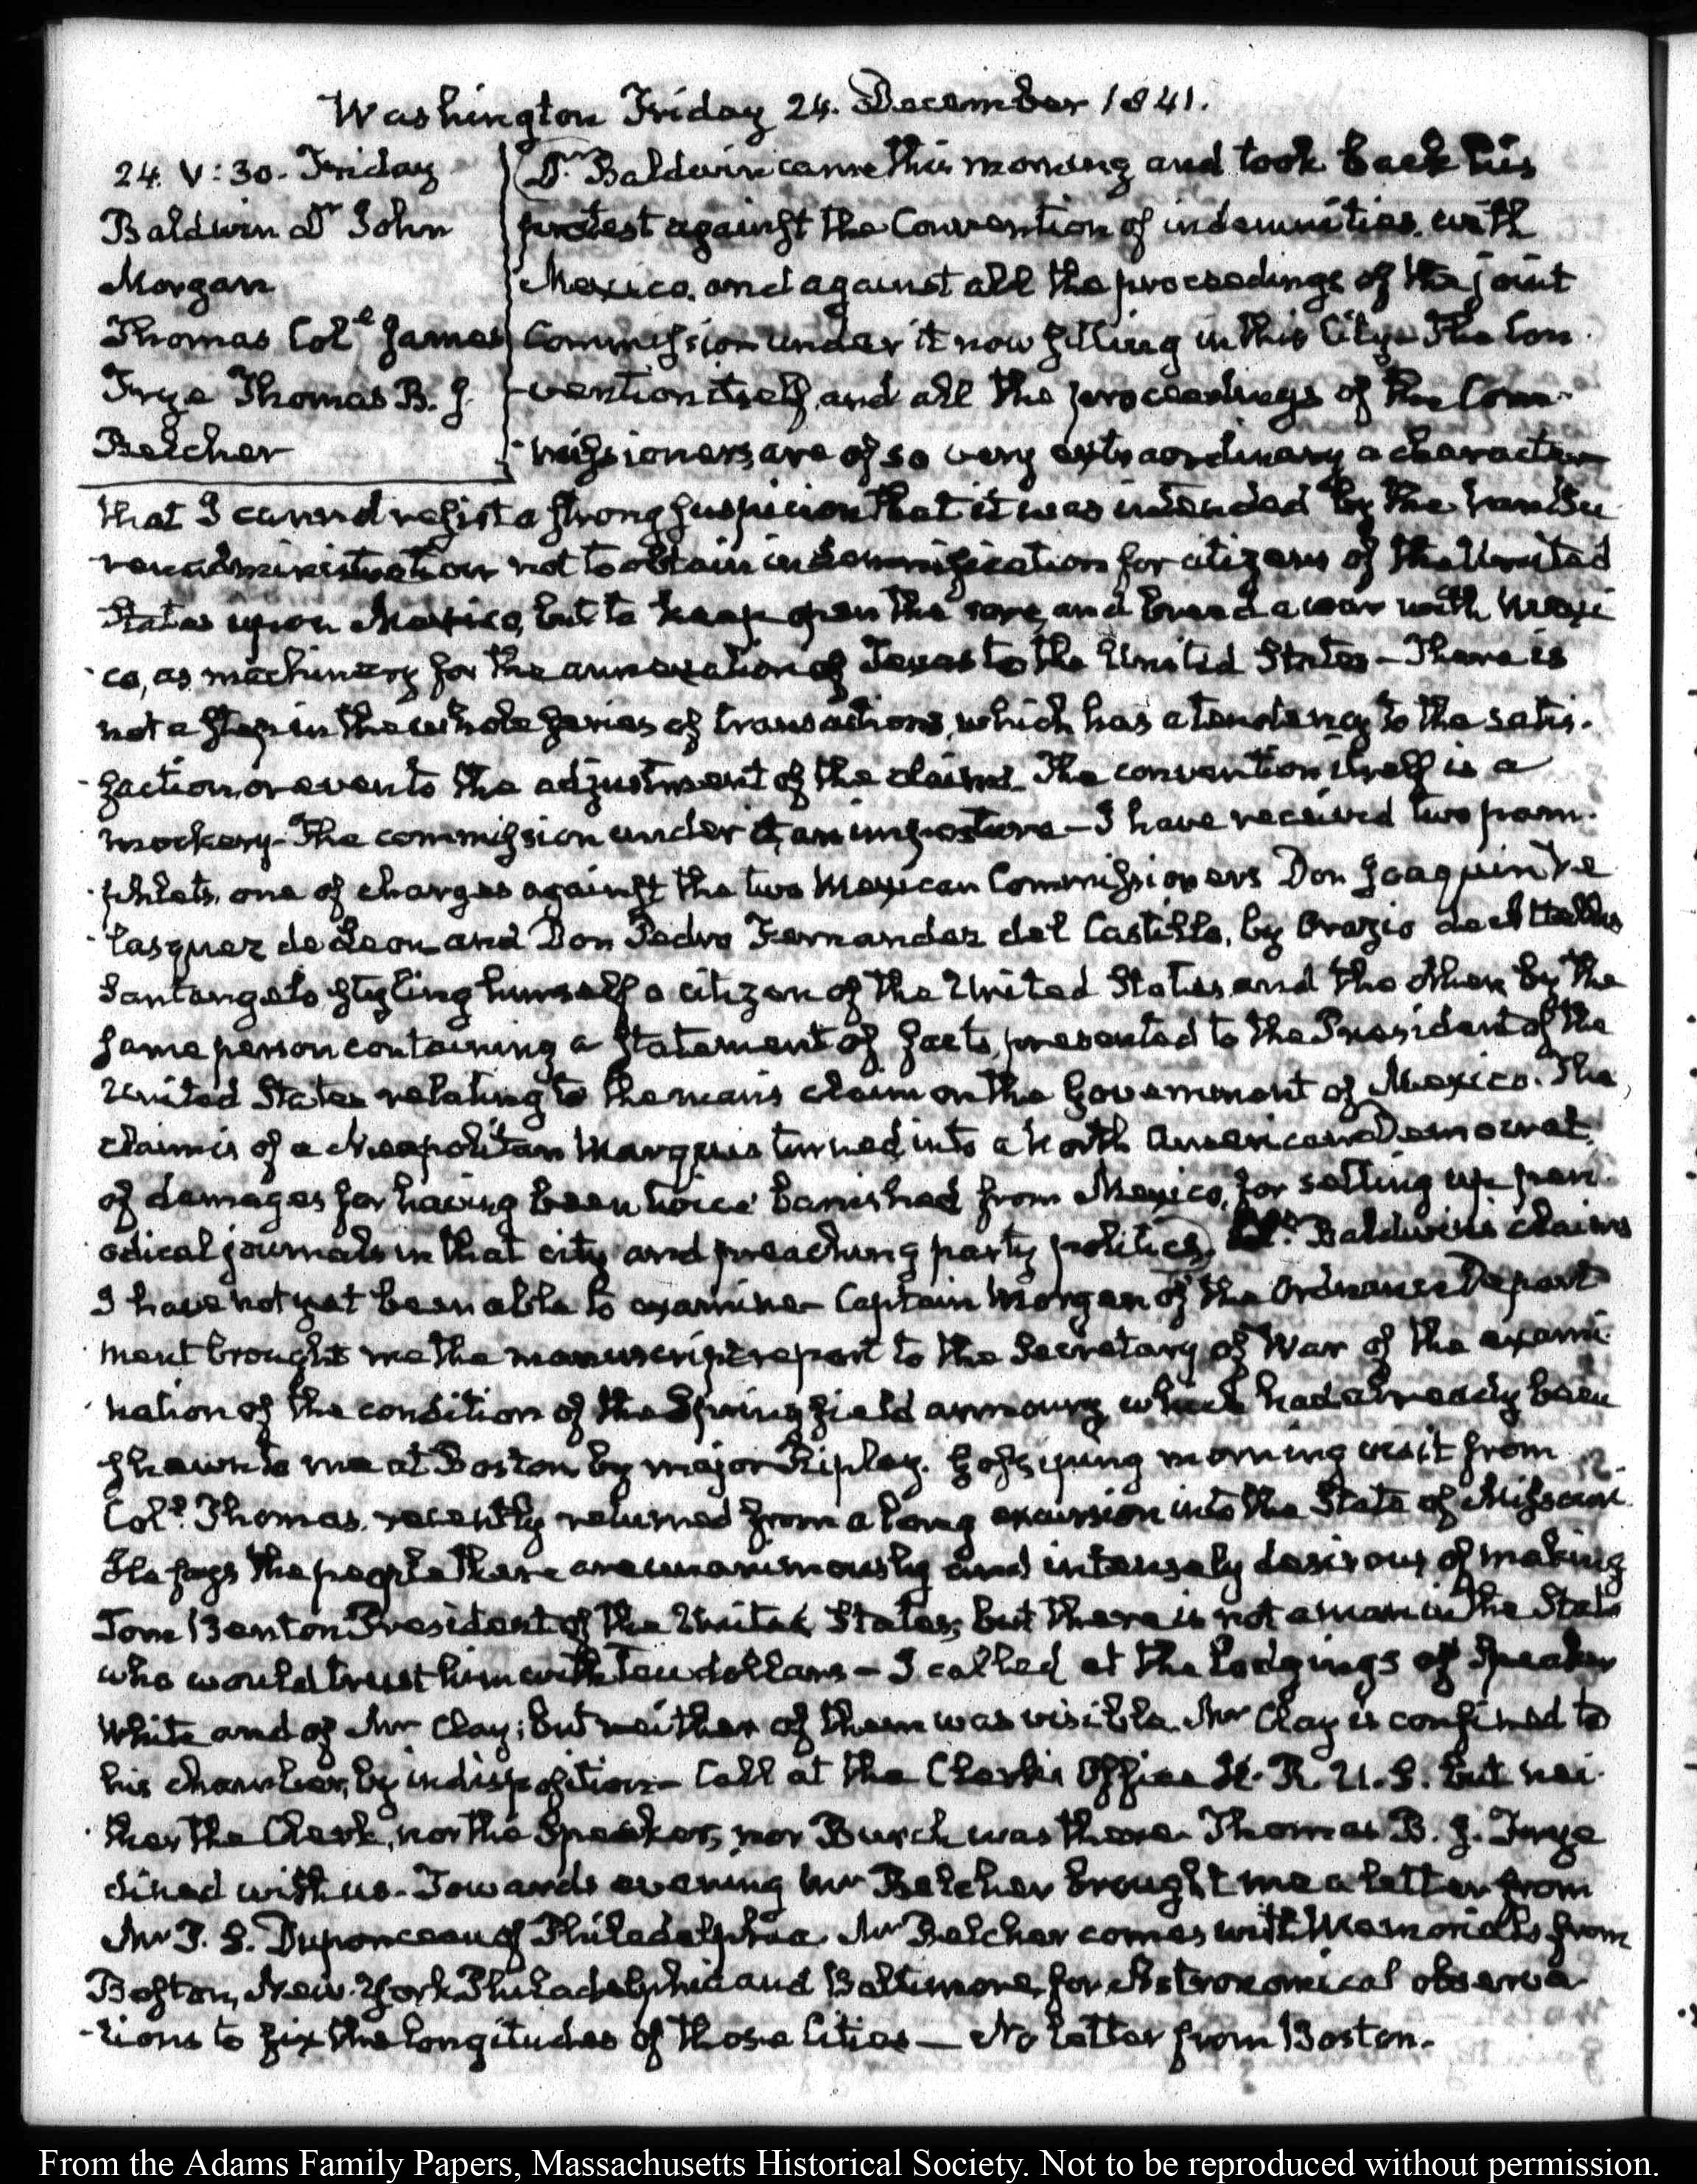 Washington Friday 24. December 1841.
24. V:30. Friday
Baldwin Dr. John
Morgan
Thomas Col.l James
Frye Thomas B. J.
Belcher
Dr. Baldwin came this morning and took back his
protest against the Convention of indemnities, with
Mexico, and against all the proceedings of the joint
Commission under it now sitting in this City. The Con
vention itself, and all the proceedings of the Com-
missioners, are of so very extraordinary a character
that I cannot resist a strong suspicion that it was intended by the Van Bu
ren administration not to obtain indemnification for citizens of the United
States upon Mexico, but to keep open the sore, and breed a war with Mexi
co, as machinery for the annexation of Texas to the United States - There is
not a step in the whole series of transactions, which has a tendency to the satis-
faction, or even to the adjustment of the claims. The convention itself is a
mockery - The commission under it, an imposture - I have received two pam-
phlets, one of charges against the two Mexican Commissioners Don Joaquin Ve
lasquez de Leon and Don Pedro Fernandez del Castillo, by Orazio de Attellis
Santangelo styling himself a citizen of the United States, and the other by the
same person containing a statement of facts, presented to the President of the
United States relating to the main claim on the Government of Mexico. The
claim is of a Neapolitan Marquis turned into a North American Democrat,
of damages for having been twice banished from Mexico, for setting up peri-
odical journals in that city and preaching party politics. Dr. Baldwin's claims
I have not yet been able to examine - Captain Morgan of the Ordnance Depart
ment brought me the manuscript report to the Secretary of War of the exami-
nation of the condition of the Springfield armoury, which had already been
shewn to me at Boston by major Ripley. Gossiping morning visit from
Col.l Thomas, recently returned from a long excursion into the State of Missouri.
He says the people there are unanimously and intensely desirous of making
Tom Benton President of the United States; but there is not a man in the State
who would trust him with ten dollars - I called at the lodgings of Speaker
White and of Mr Clay; but neither of them was visible. Mr Clay is confined to
his chamber, by indisposition - Call at the Clerk's Office H. R. U. S. but nei-
ther the Clerk, nor the Speaker, nor Burch was there. Thomas B. J. Frye
dined with us. Towards evening Mr Belcher brought me a letter from
Mr P. S. Duponceau of Philadelphia. Mr Belcher comes with Memorials from
Boston, New-York, Philadelphia and Baltimore, for Astronomical observa
tions to fix the longitudes of those Cities — No letter from Boston.
From the Adams Family Papers, Massachusetts Historical Society. Not to be reproduced without permission.